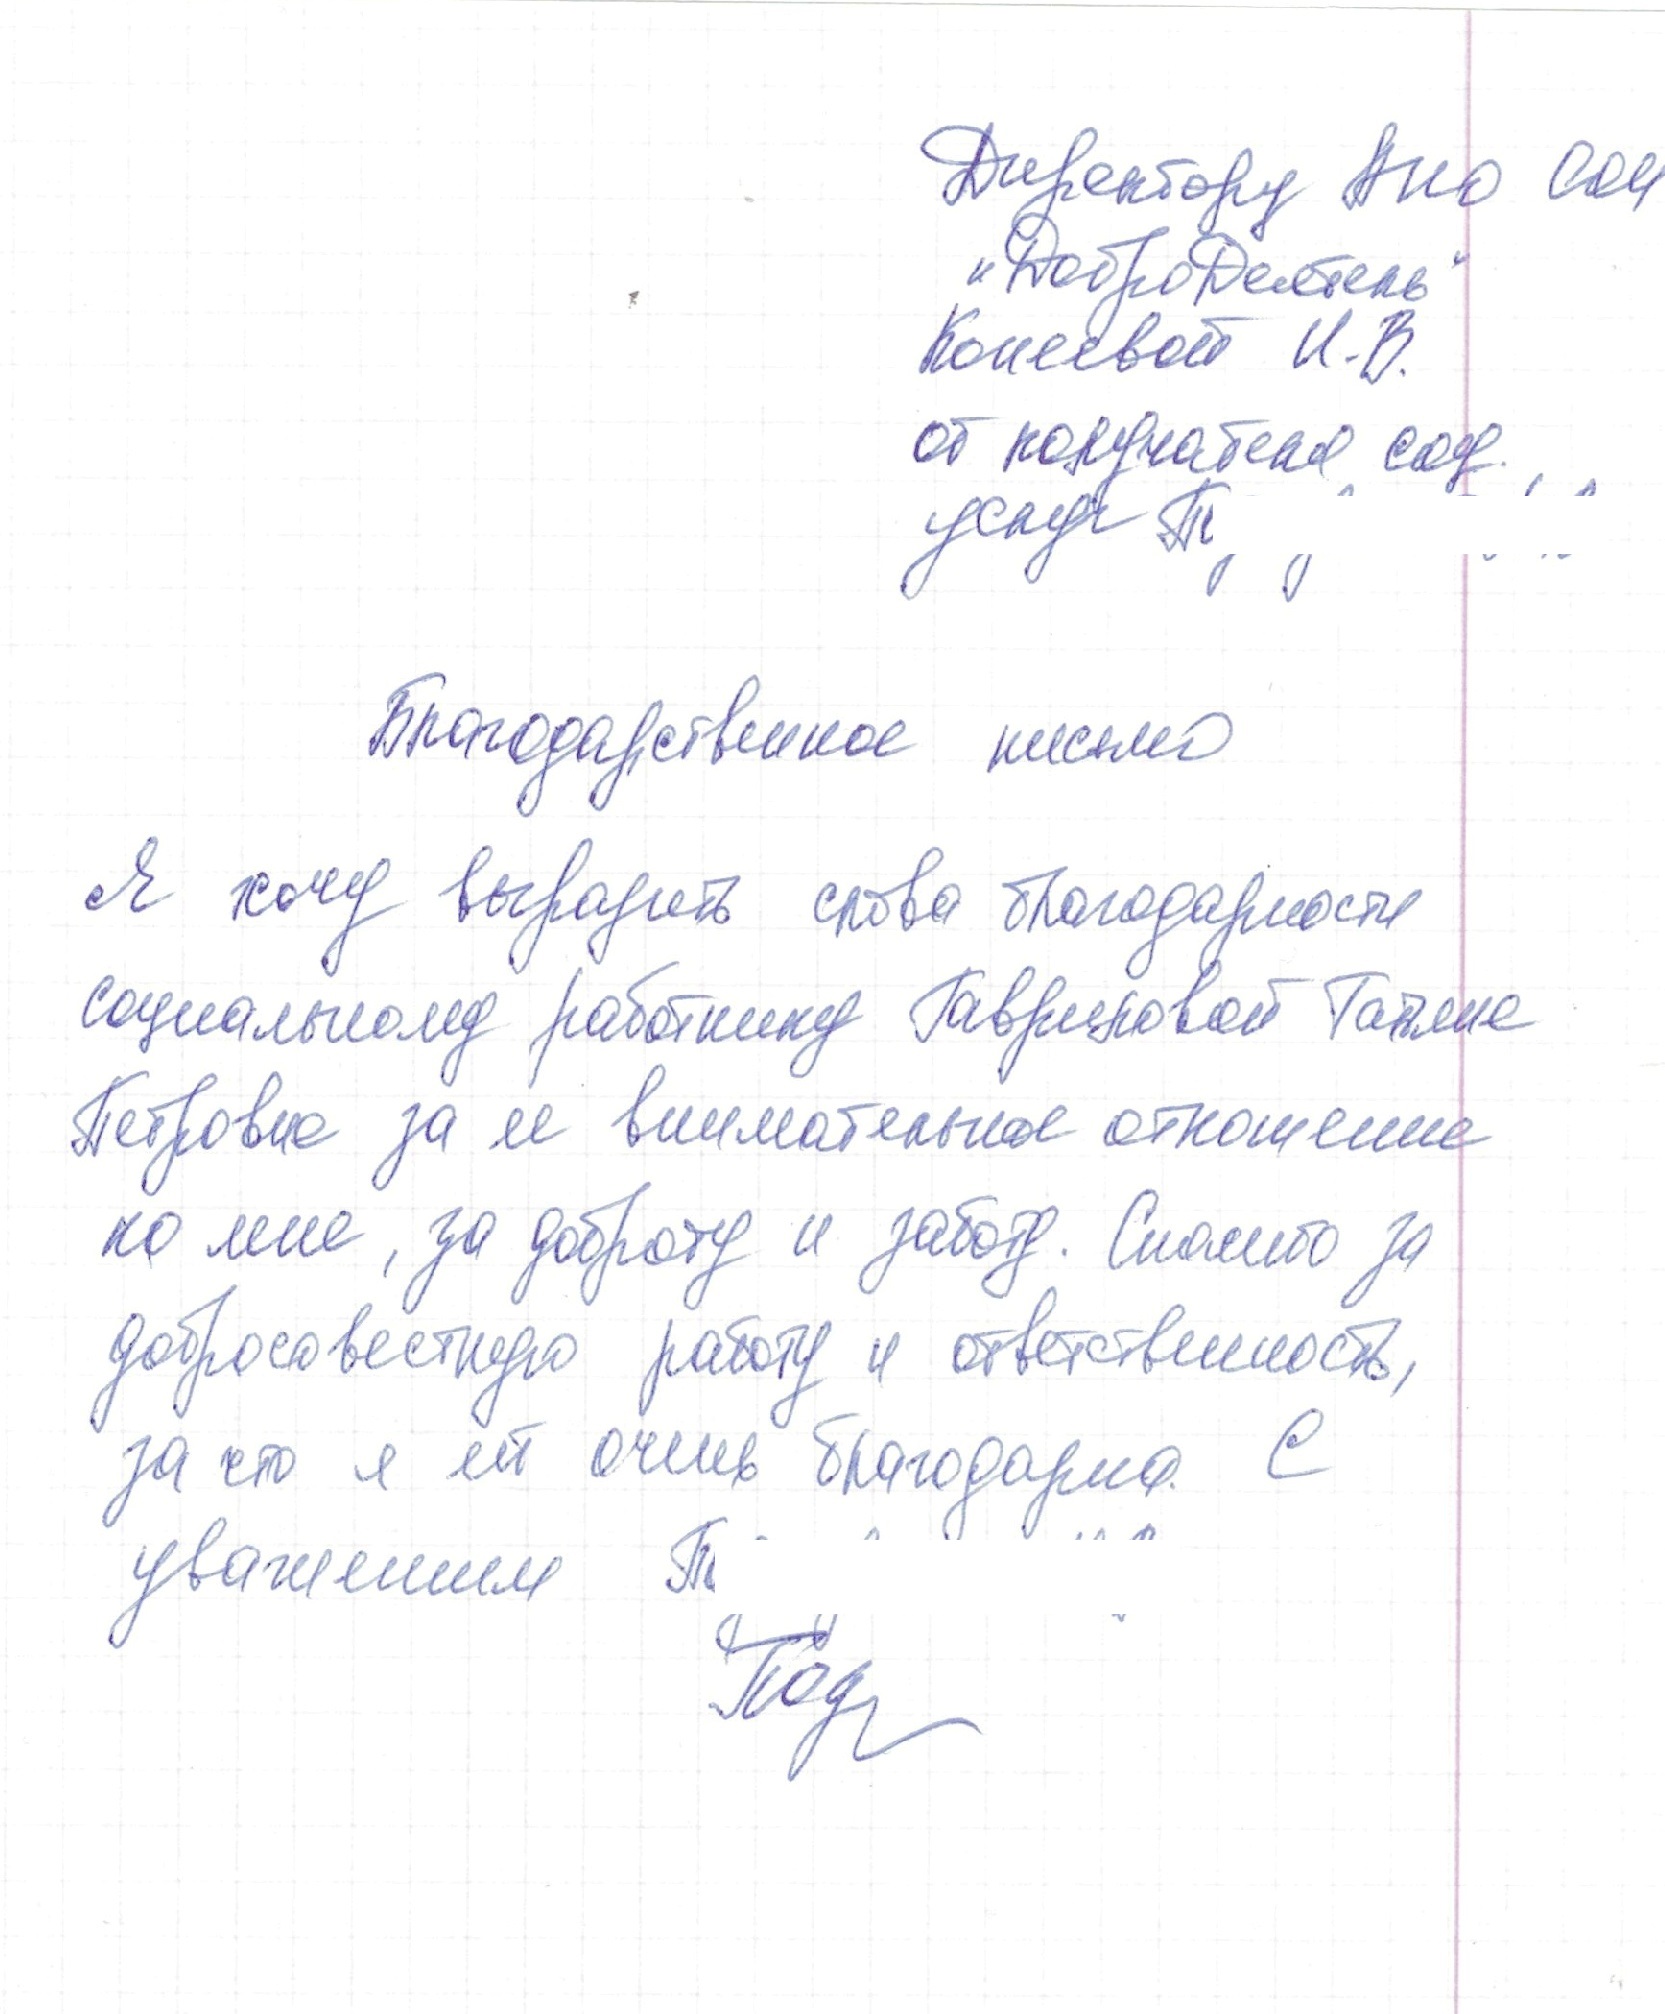 Директору АНО СОН
"ДоброДеятель"
Конеевой И.В.
от получателя соц.
услуг
Благодарственное письмо
Я хочу выразить слова благодарности
социальному работнику Гавриловой Татьяне
Петровне за ее внимательное отношение
ко мне, за доброту и заботу. Спасибо за
добросовестную работу и ответственность,
за что я ей очень благодарна. С
уважением